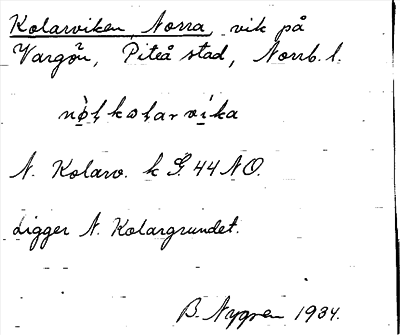 Kolarviken, Norra, vik på
Vargön, Piteå stad, Norrb. l.
nø̀ḷkoḷarvika
N. Kolarv. k S. 44 NO.
Ligger N. Kolargrundet.
B. Nygren 1934.